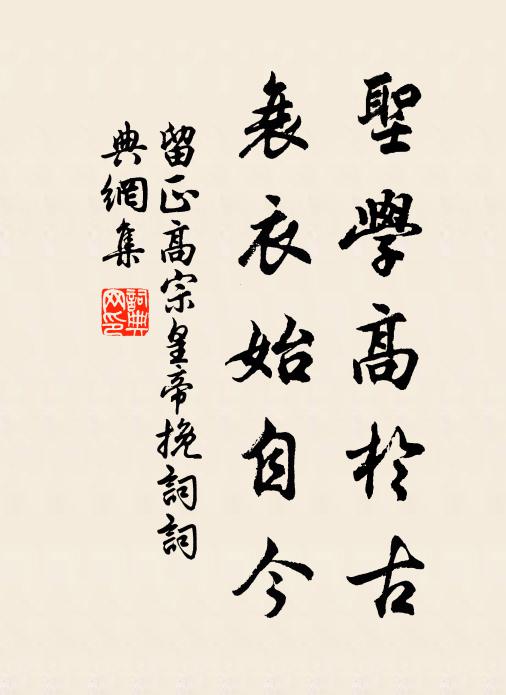 聖學高於古
衰衣始自今
留正高宗皇帝挽詞詞
典網集
詞典網印